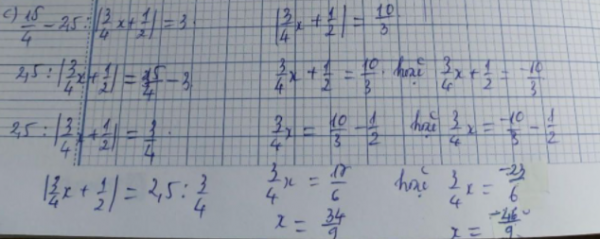 c) 15/4 - 2,5 : |3/4x + 1/2| = 3.
2,5 : |3/4x + 1/2| = 15/4 - 3
2,5 : |3/4x + 1/2| = 3/4.
|3/4x + 1/2| = 2,5 : 3/4
|3/4x + 1/2| = 10/3
3/4x + 1/2 = 10/3. hoặc 3/4x + 1/2 = -10/3.
3/4x = 10/3 - 1/2 hoặc 3/4x = -10/3 - 1/2
3/4x = 17/6 hoặc 3/4x = -23/6
x = 34/9 x = -46/9.